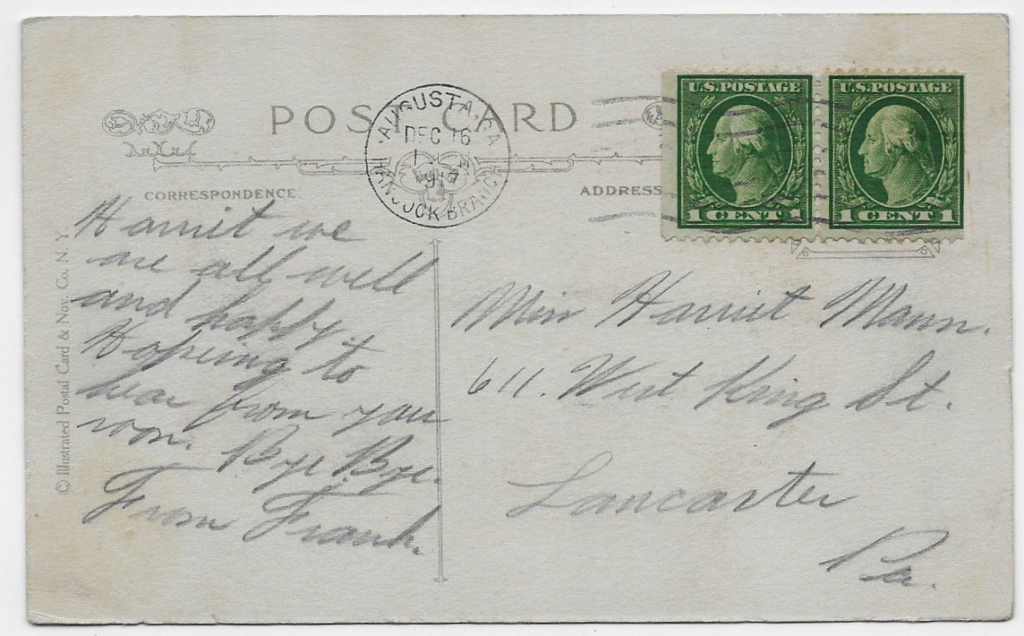 POST CARD
AUGUSTA, GA.
DEC 16
1917
HANCOCK BRANCH
U.S. POSTAGE
1 CENT 1
U.S. POSTAGE
1 CENT 1
CORRESPONDENCE
ADDRESS
© Illustrated Postal Card & Nov. Co. N. Y.
Harriet we
are all well
and happy
Hopeing to
hear from you
soon. Bye Bye.
From Frank.
Miss Harriet Mann.
611. West King St.
Lancaster
Pa.